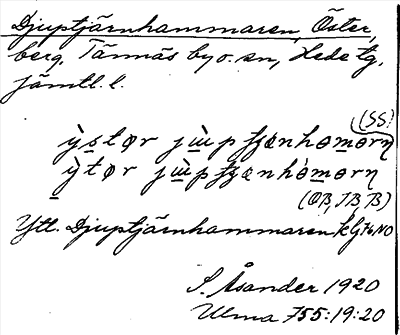 Djuptjärnhammaren, Öster,
berg, Tännäs by o. sn, Hede tg,
Jämtl. l.
(SS?
ỳstør jɯ̀p ʈʂænhòmərn
ỳtør jɯ̀p ʈʂænhòmərn
(OB, JB, B)
Ytl. Djuptjärnhammaren
S. Åsander 1920
Ulma 755:19:20